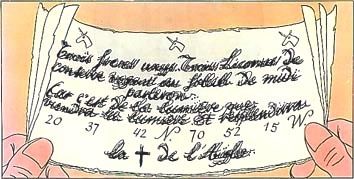 Trois freres unys. Trois Licornes De
conserve vogant au soleil de midi
parleront.
Car c'est De la lumiere que
viendra la lumiere Et resplendira
20 37 42 N. 70 52 15 W
la ✝ De l'Aigle.